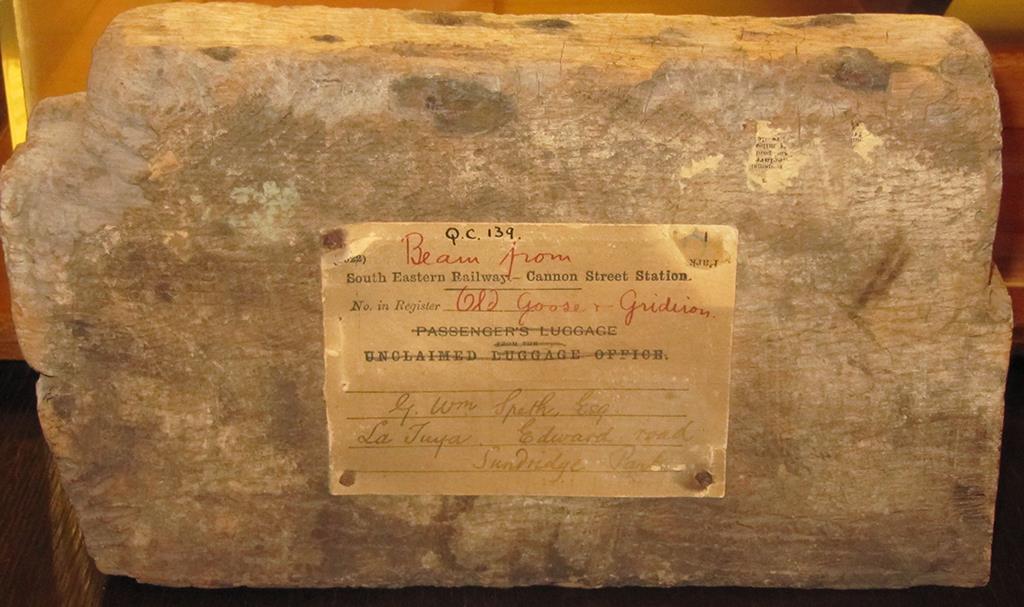 Q.C. 139.
Beam from
South Eastern Railway.—Cannon Street Station.
No. in Register Old Goose & Gridiron.
PASSENGER'S LUGGAGE
FROM THE
UNCLAIMED LUGGAGE OFFICE.
G. Wm Speth, Esq.
La Tuya. Edward road
Sundridge Park